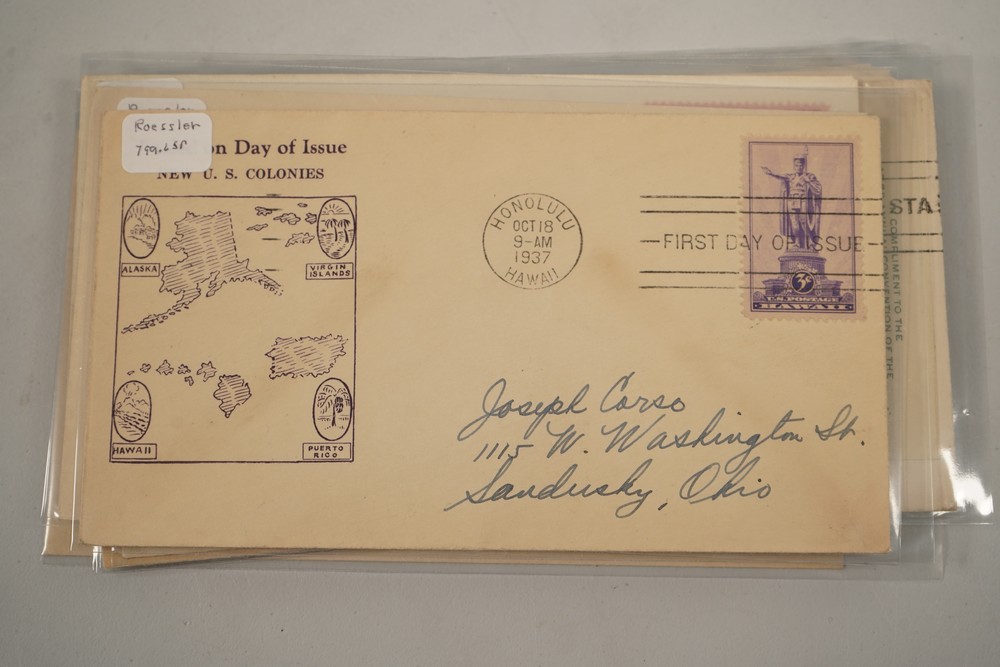 Roessler
799
on Day of Issue
NEW U. S. COLONIES
ALASKA
VIRGIN
ISLANDS
HAWAII
PUERTO
RICO
HONOLULU
OCT 18
9-AM
1937
HAWAII
FIRST DAY OF ISSUE
3¢
U.S. POSTAGE
HAWAII
STA
COMPLIMENT TO THE
CONVENTION OF THE
Joseph Corso
1115 W. Washington St.
Sandusky, Ohio